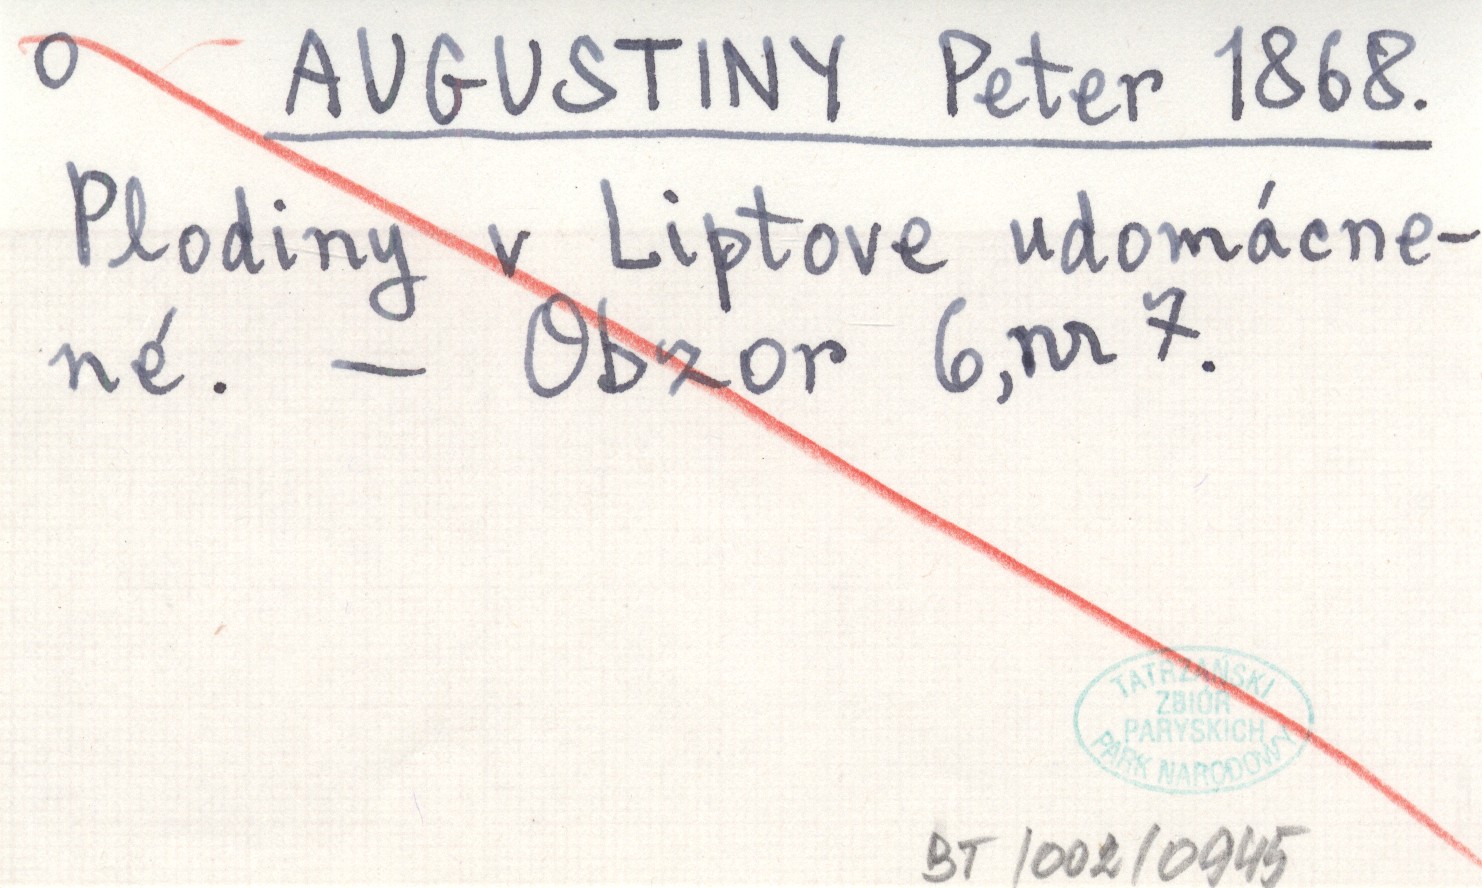 O AUGUSTINY Peter 1868.
Plodiny v Liptove udomácne-
né. — Obzor 6, nr 7.
TATRZAŃSKI
ZBIÓR
PARYSKICH
PARK NARODOWY
BT/002/0945